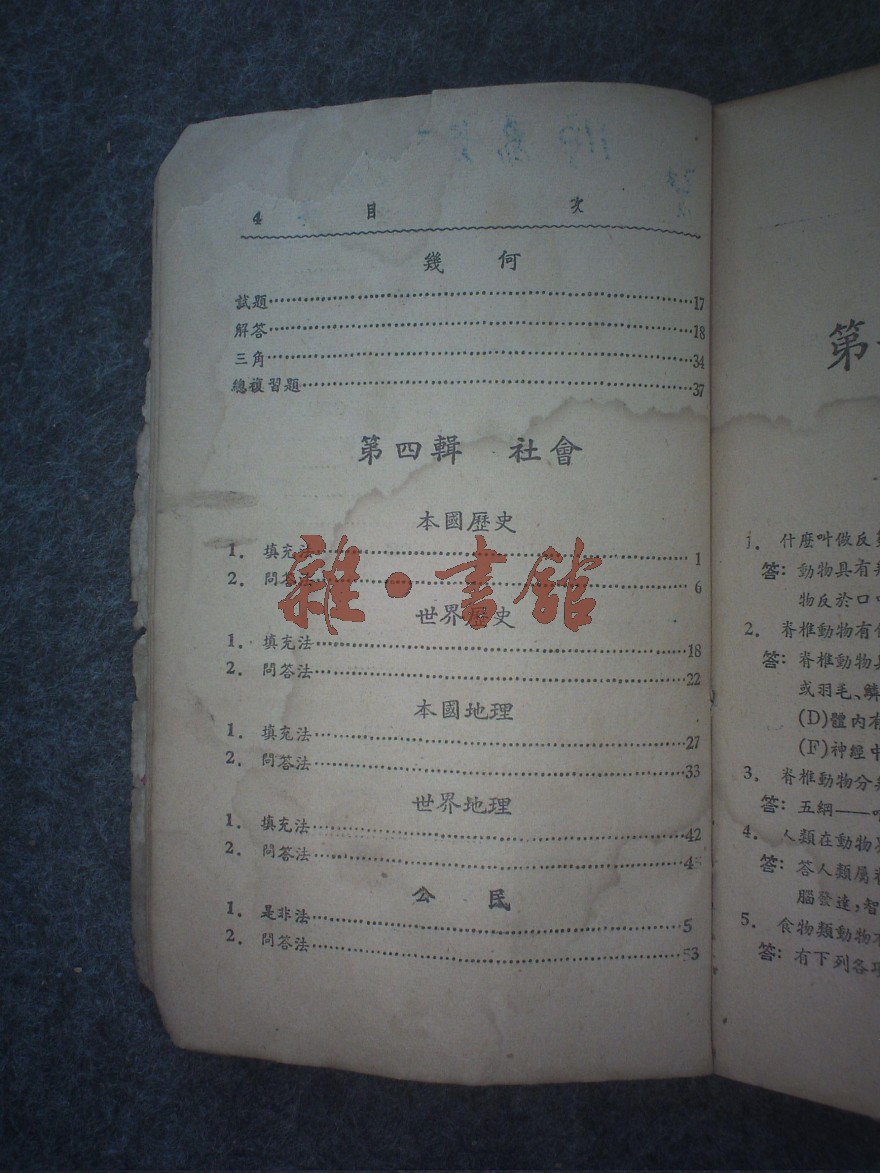 4 目 次
幾 何
試題……17
解答……18
三角……34
總複習題……37
第四輯 社會
本國歷史
1. 填充法……1
2. 問答法……6
世界歷史
1. 填充法……18
2. 問答法……22
本國地理
1. 填充法……27
2. 問答法……33
世界地理
1. 填充法……42
2. 問答法……45
公 民
1. 是非法……5
2. 問答法……53
雜·書館
第
1. 什麼叫做反
答: 動物具有
物反於口
2. 脊椎動物有
答: 脊椎動物
或羽毛、鱗
(D)體內有
(F)神經中
3. 脊椎動物分
答: 五綱——
4. 人類在動物
答: 答人類屬
腦發達,智
5. 食物類動物
答: 有下列各項